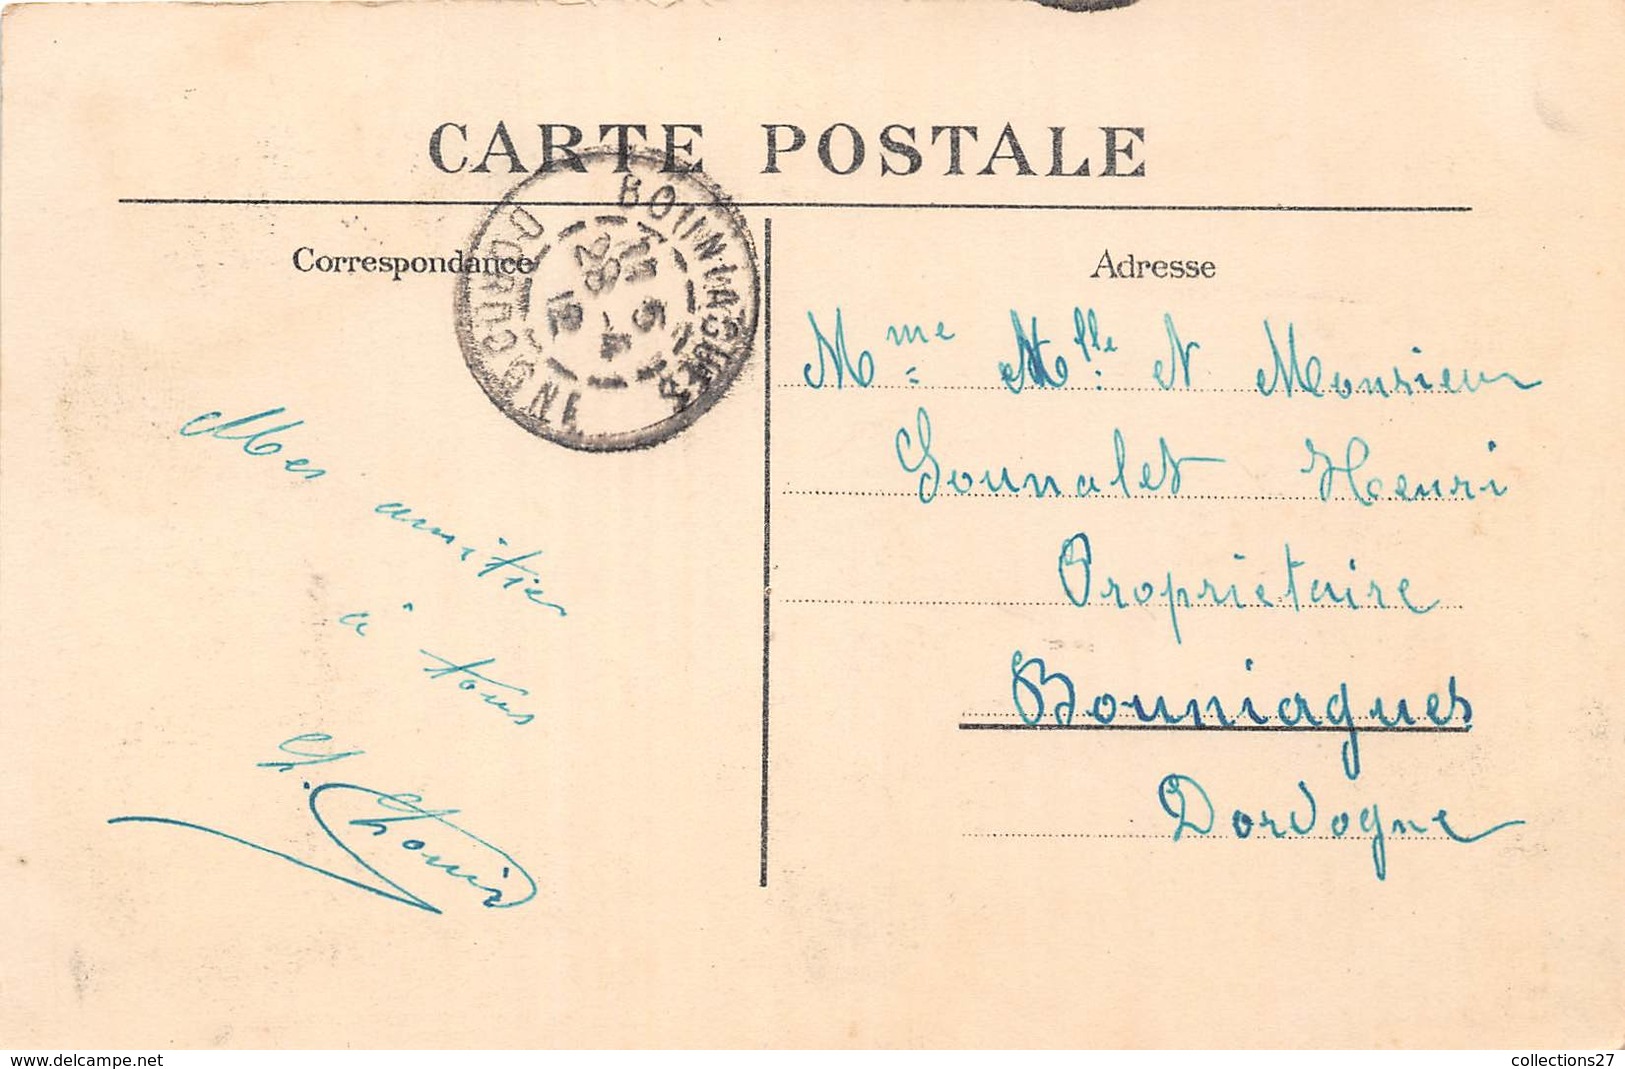 CARTE POSTALE
Correspondance
Adresse
BOUNIAGUES
DORDOGNE
28 -4
12
Mes amitiés
à tous
Mme Mlle et Monsieur
Gounalet Henri
Propriétaire
Bouniagues
Dordogne
www.delcampe.net
collections27